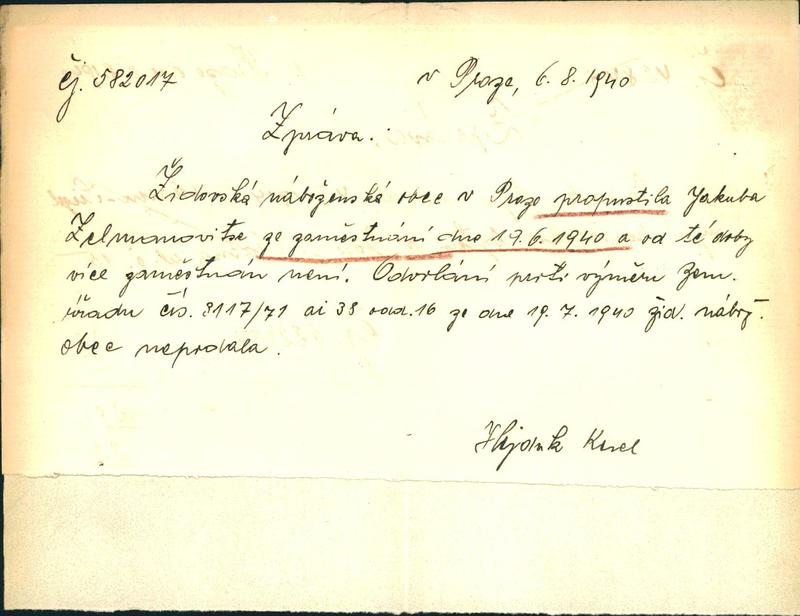 čj. 582017 v Praze, 6.8.1940
Zpráva.
Židovská náboženská obec v Praze propustila Jakuba
Zelmanovitse ze zaměstnání dne 19.6.1940 a od té doby
více zaměstnán není. Odvolání proti výměru Zem.
úřadu čís. 3117/71 ai 38 odd. 16 ze dne 19.7.1940 žid. nábož.
obec nepodala.
Karel